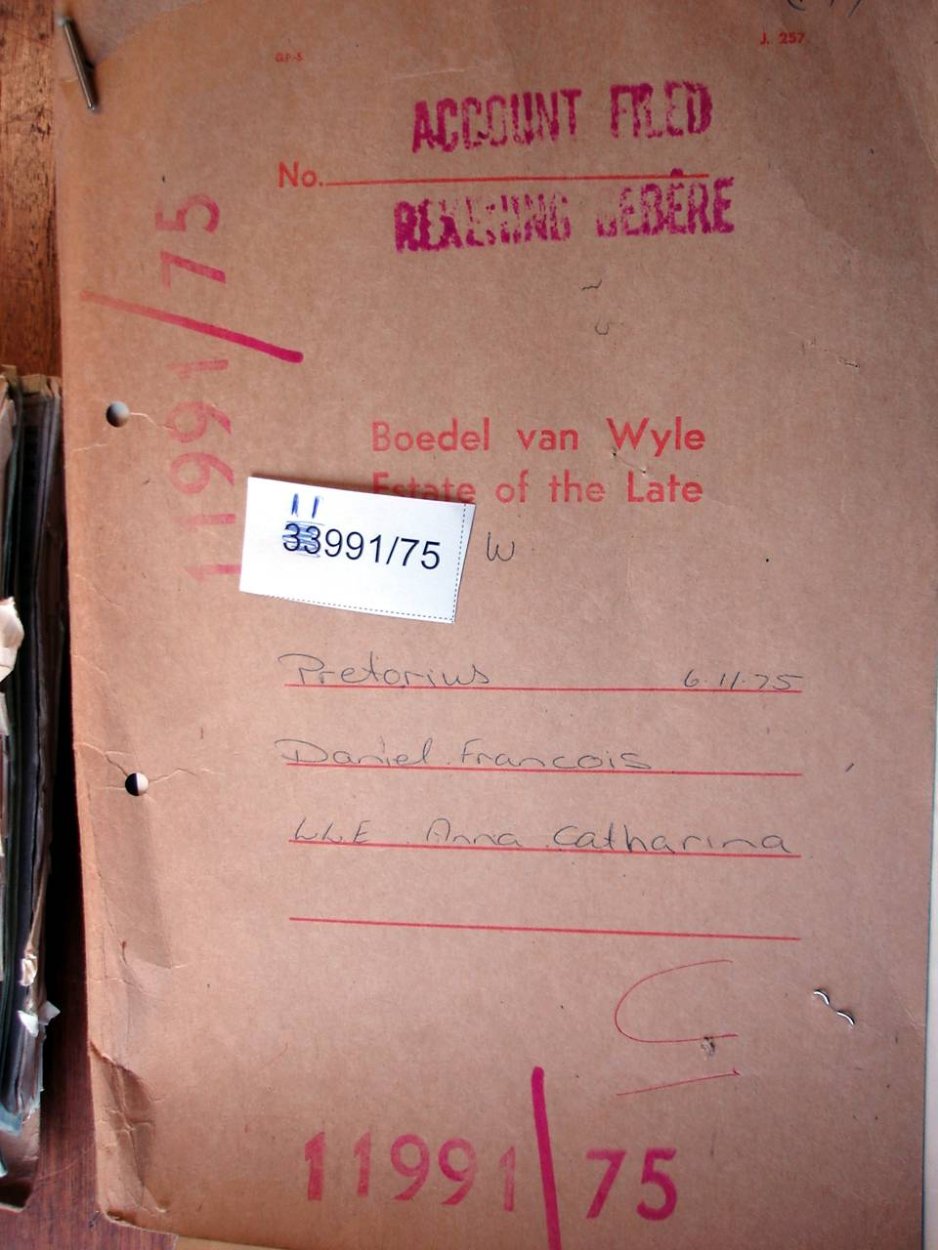 G.P.-S
J. 257
ACCOUNT FILED
No.
REKENING GEBÊRE
11991/75
Boedel van Wyle
Estate of the Late
11
33991/75
W
Pretorius 6.11.75
Daniel Francois
Anna Catharina
C
11991/75